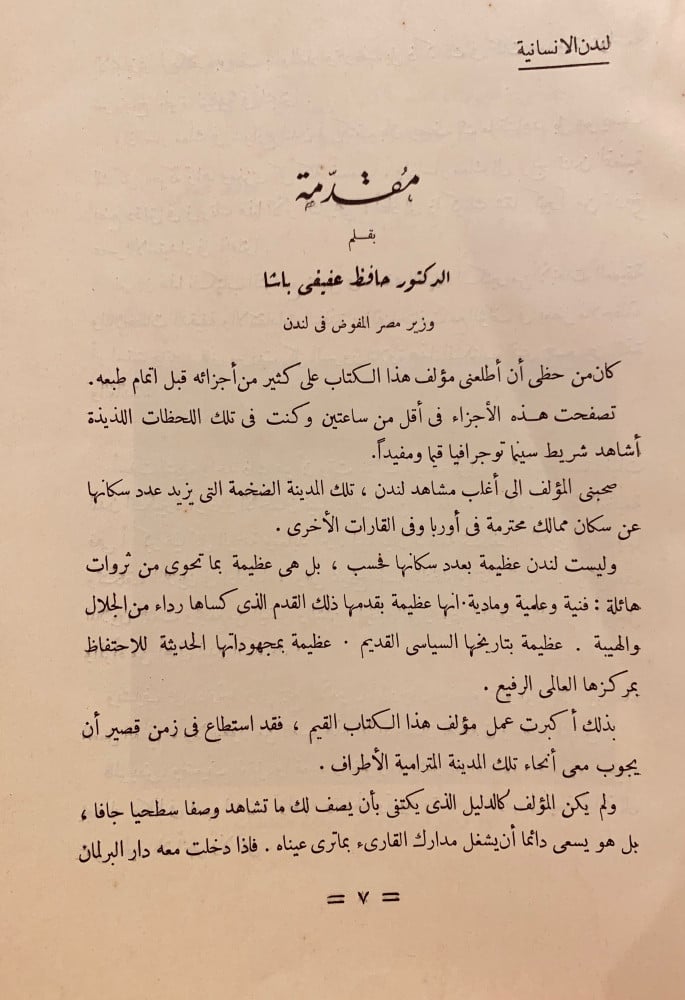 لندن الانسانية
مُقدّمة
بقلم
الدكتور حافظ عفيفى باشا
وزير مصر المفوض فى لندن
كان من حظى أن أطلعنى مؤلف هذا الكتاب على كثير من أجزائه قبل اتمام طبعه.
تصفحت هذه الأجزاء فى أقل من ساعتين وكنت فى تلك اللحظات اللذيذة
أشاهد شريط سينما توجرافيا قيما ومفيداً.
صحبنى المؤلف الى أغلب مشاهد لندن ، تلك المدينة الضخمة التى يزيد عدد سكانها
عن سكان ممالك محترمة فى أوربا وفى القارات الأخرى .
وليست لندن عظيمة بعدد سكانها فحسب ، بل هى عظيمة بما تحوى من ثروات
هائلة : فنية وعلمية ومادية . انها عظيمة بقدمها ذلك القدم الذى كساها رداء من الجلال
والهيبة . عظيمة بتاريخها السياسى القديم . عظيمة بمجهوداتها الحديثة للاحتفاظ
بمركزها العالمى الرفيع .
بذلك أكبرت عمل مؤلف هذا الكتاب القيم ، فقد استطاع فى زمن قصير أن
يجوب معى أنحاء تلك المدينة المترامية الأطراف .
ولم يكن المؤلف كالدليل الذى يكتفى بأن يصف لك ما تشاهد وصفا سطحيا جافا ،
بل هو يسعى دائما أن يشغل مدارك القارىء بماترى عيناه . فاذا دخلت معه دار البرلمان
= ٧ =